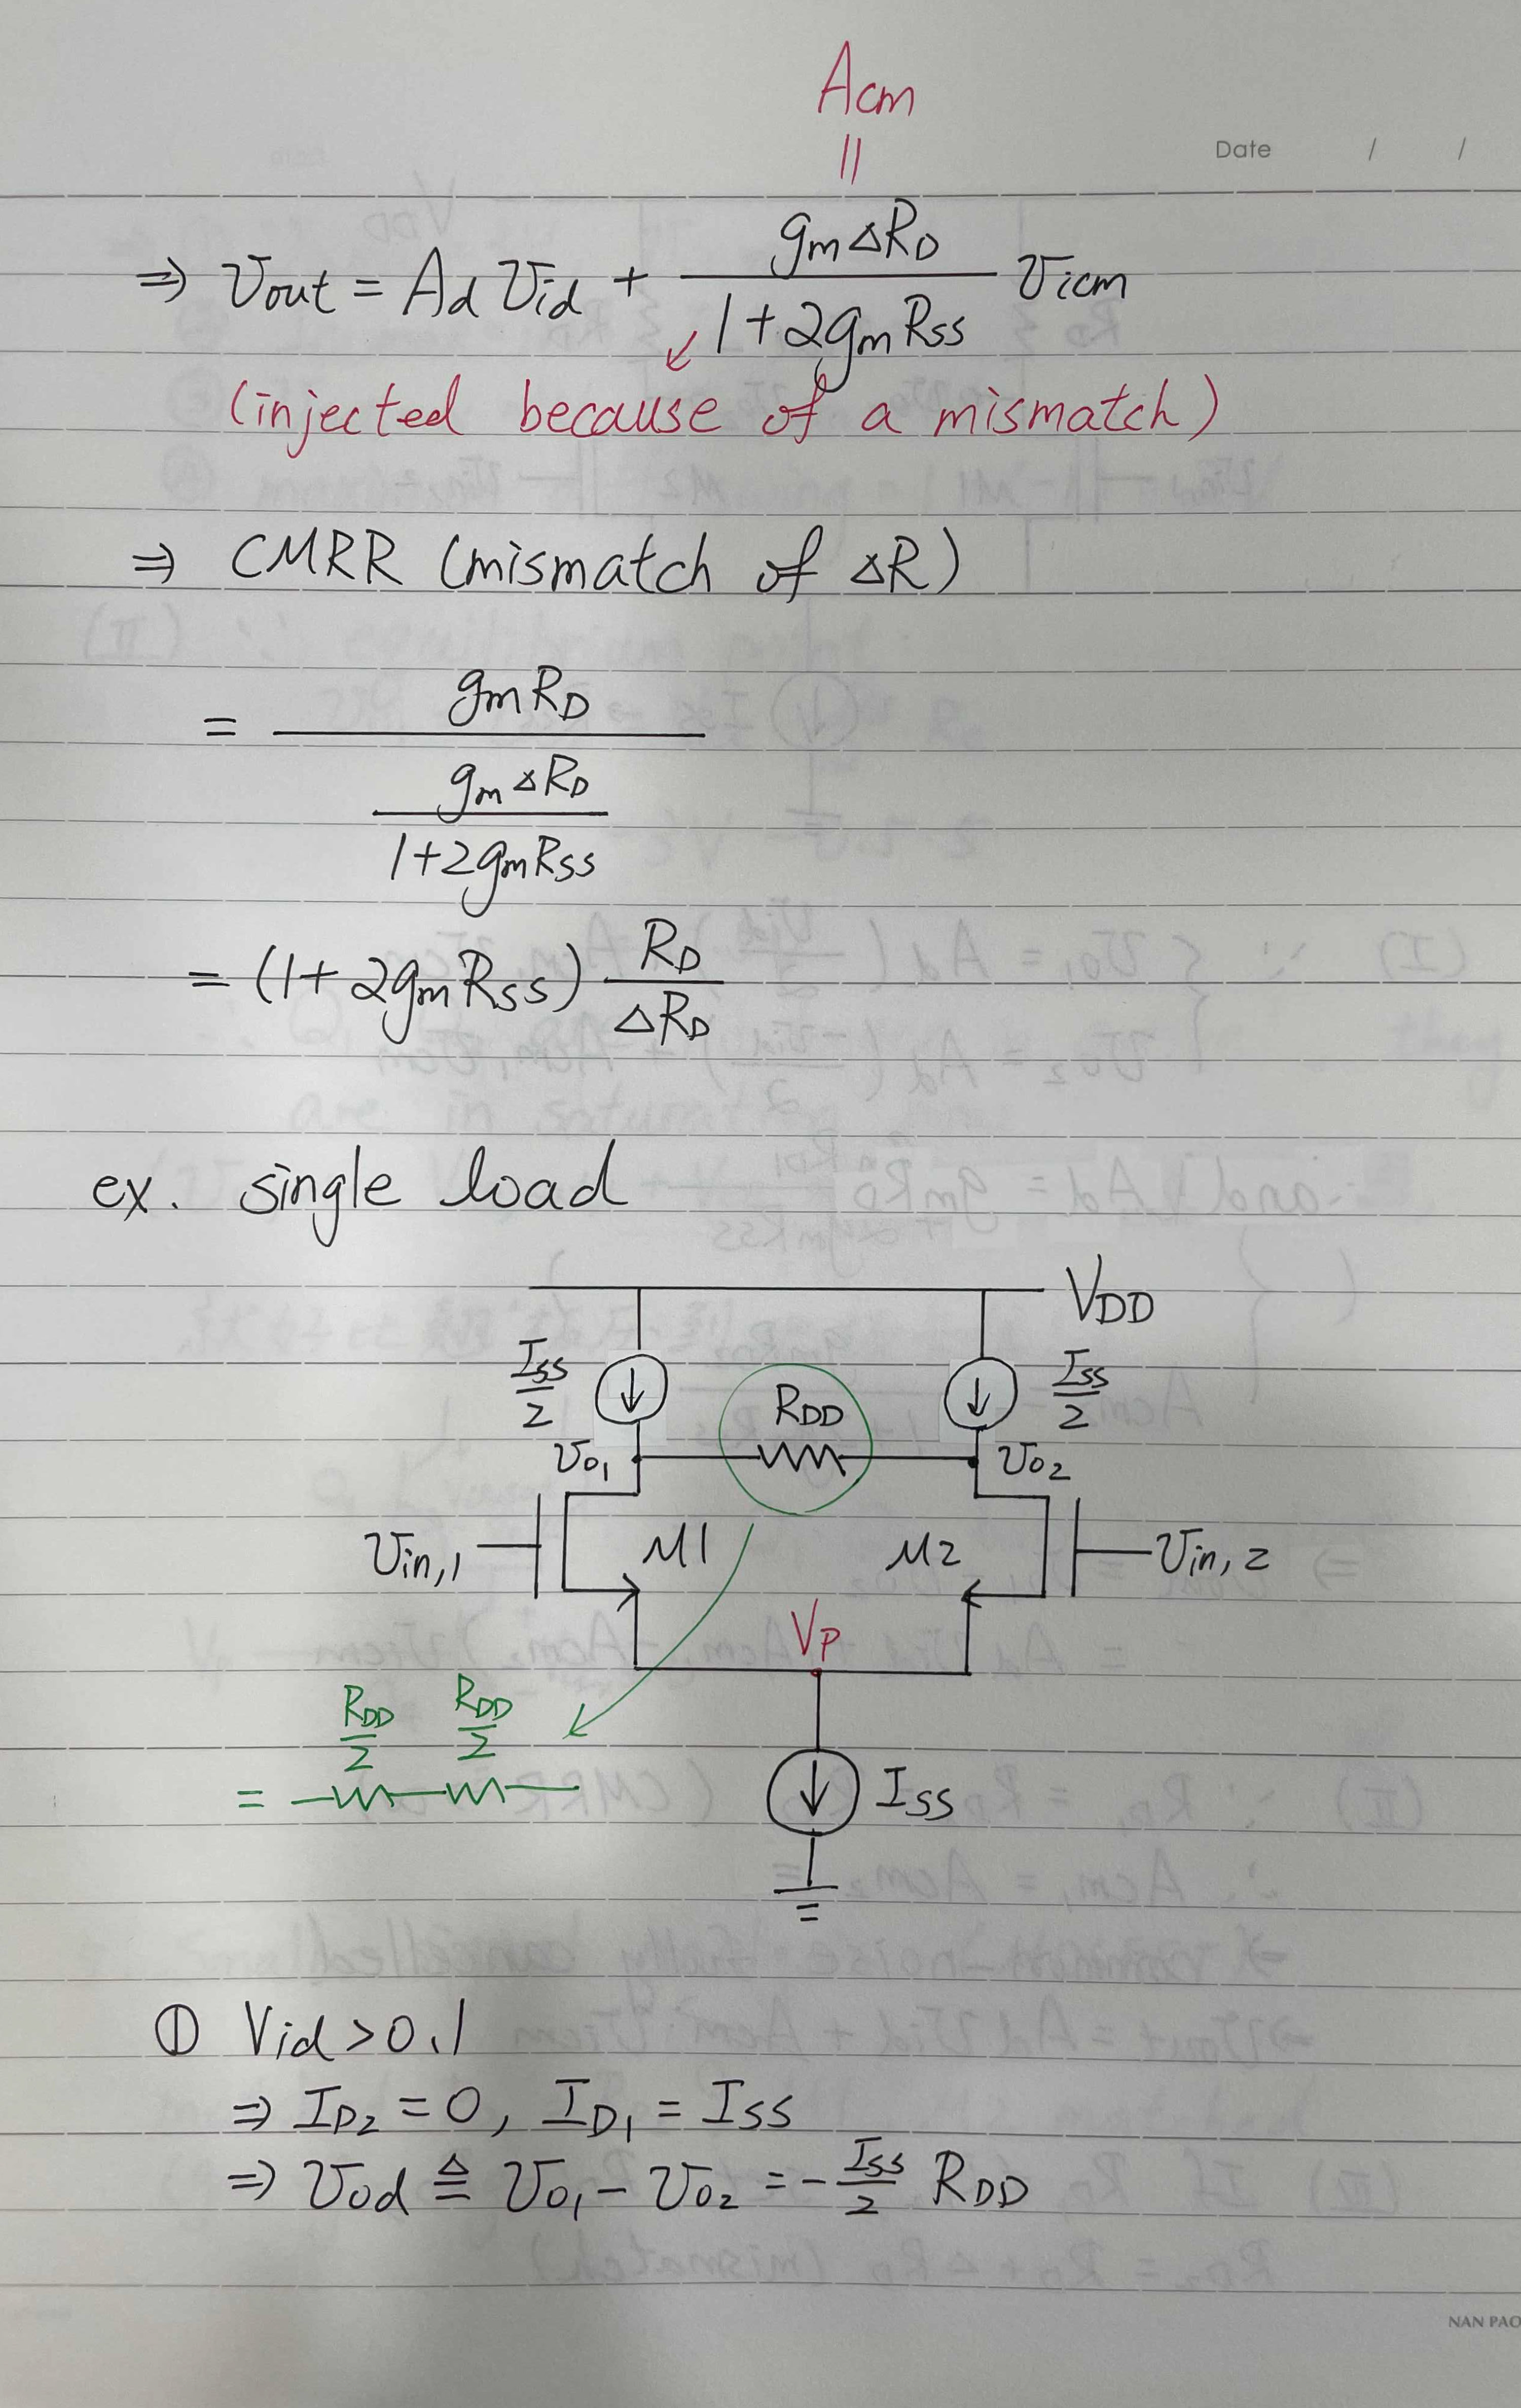 Acm
||
Date / /
⇒ Vout = Ad Vid + gm△RD / 1+2gmRss Vicm
(injected because of a mismatch)
⇒ CMRR (mismatch of △R)
= gmRD / (gm△RD / 1+2gmRss)
= (1+2gmRss) RD / △RD
ex. single load
VDD
Iss/2 RDD Iss/2
Vo1 Vo2
Vin,1 M1 M2 Vin,2
VP
RDD/2 RDD/2
=
Iss
① Vid > 0.1
⇒ ID2 = 0, ID1 = Iss
⇒ Vod ≜ Vo1 - Vo2 = - Iss/2 RDD
NAN PAO